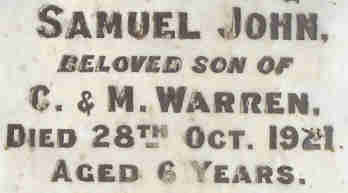 SAMUEL JOHN,
BELOVED SON OF
C. & M. WARREN,
DIED 28TH OCT. 1921
AGED 6 YEARS.